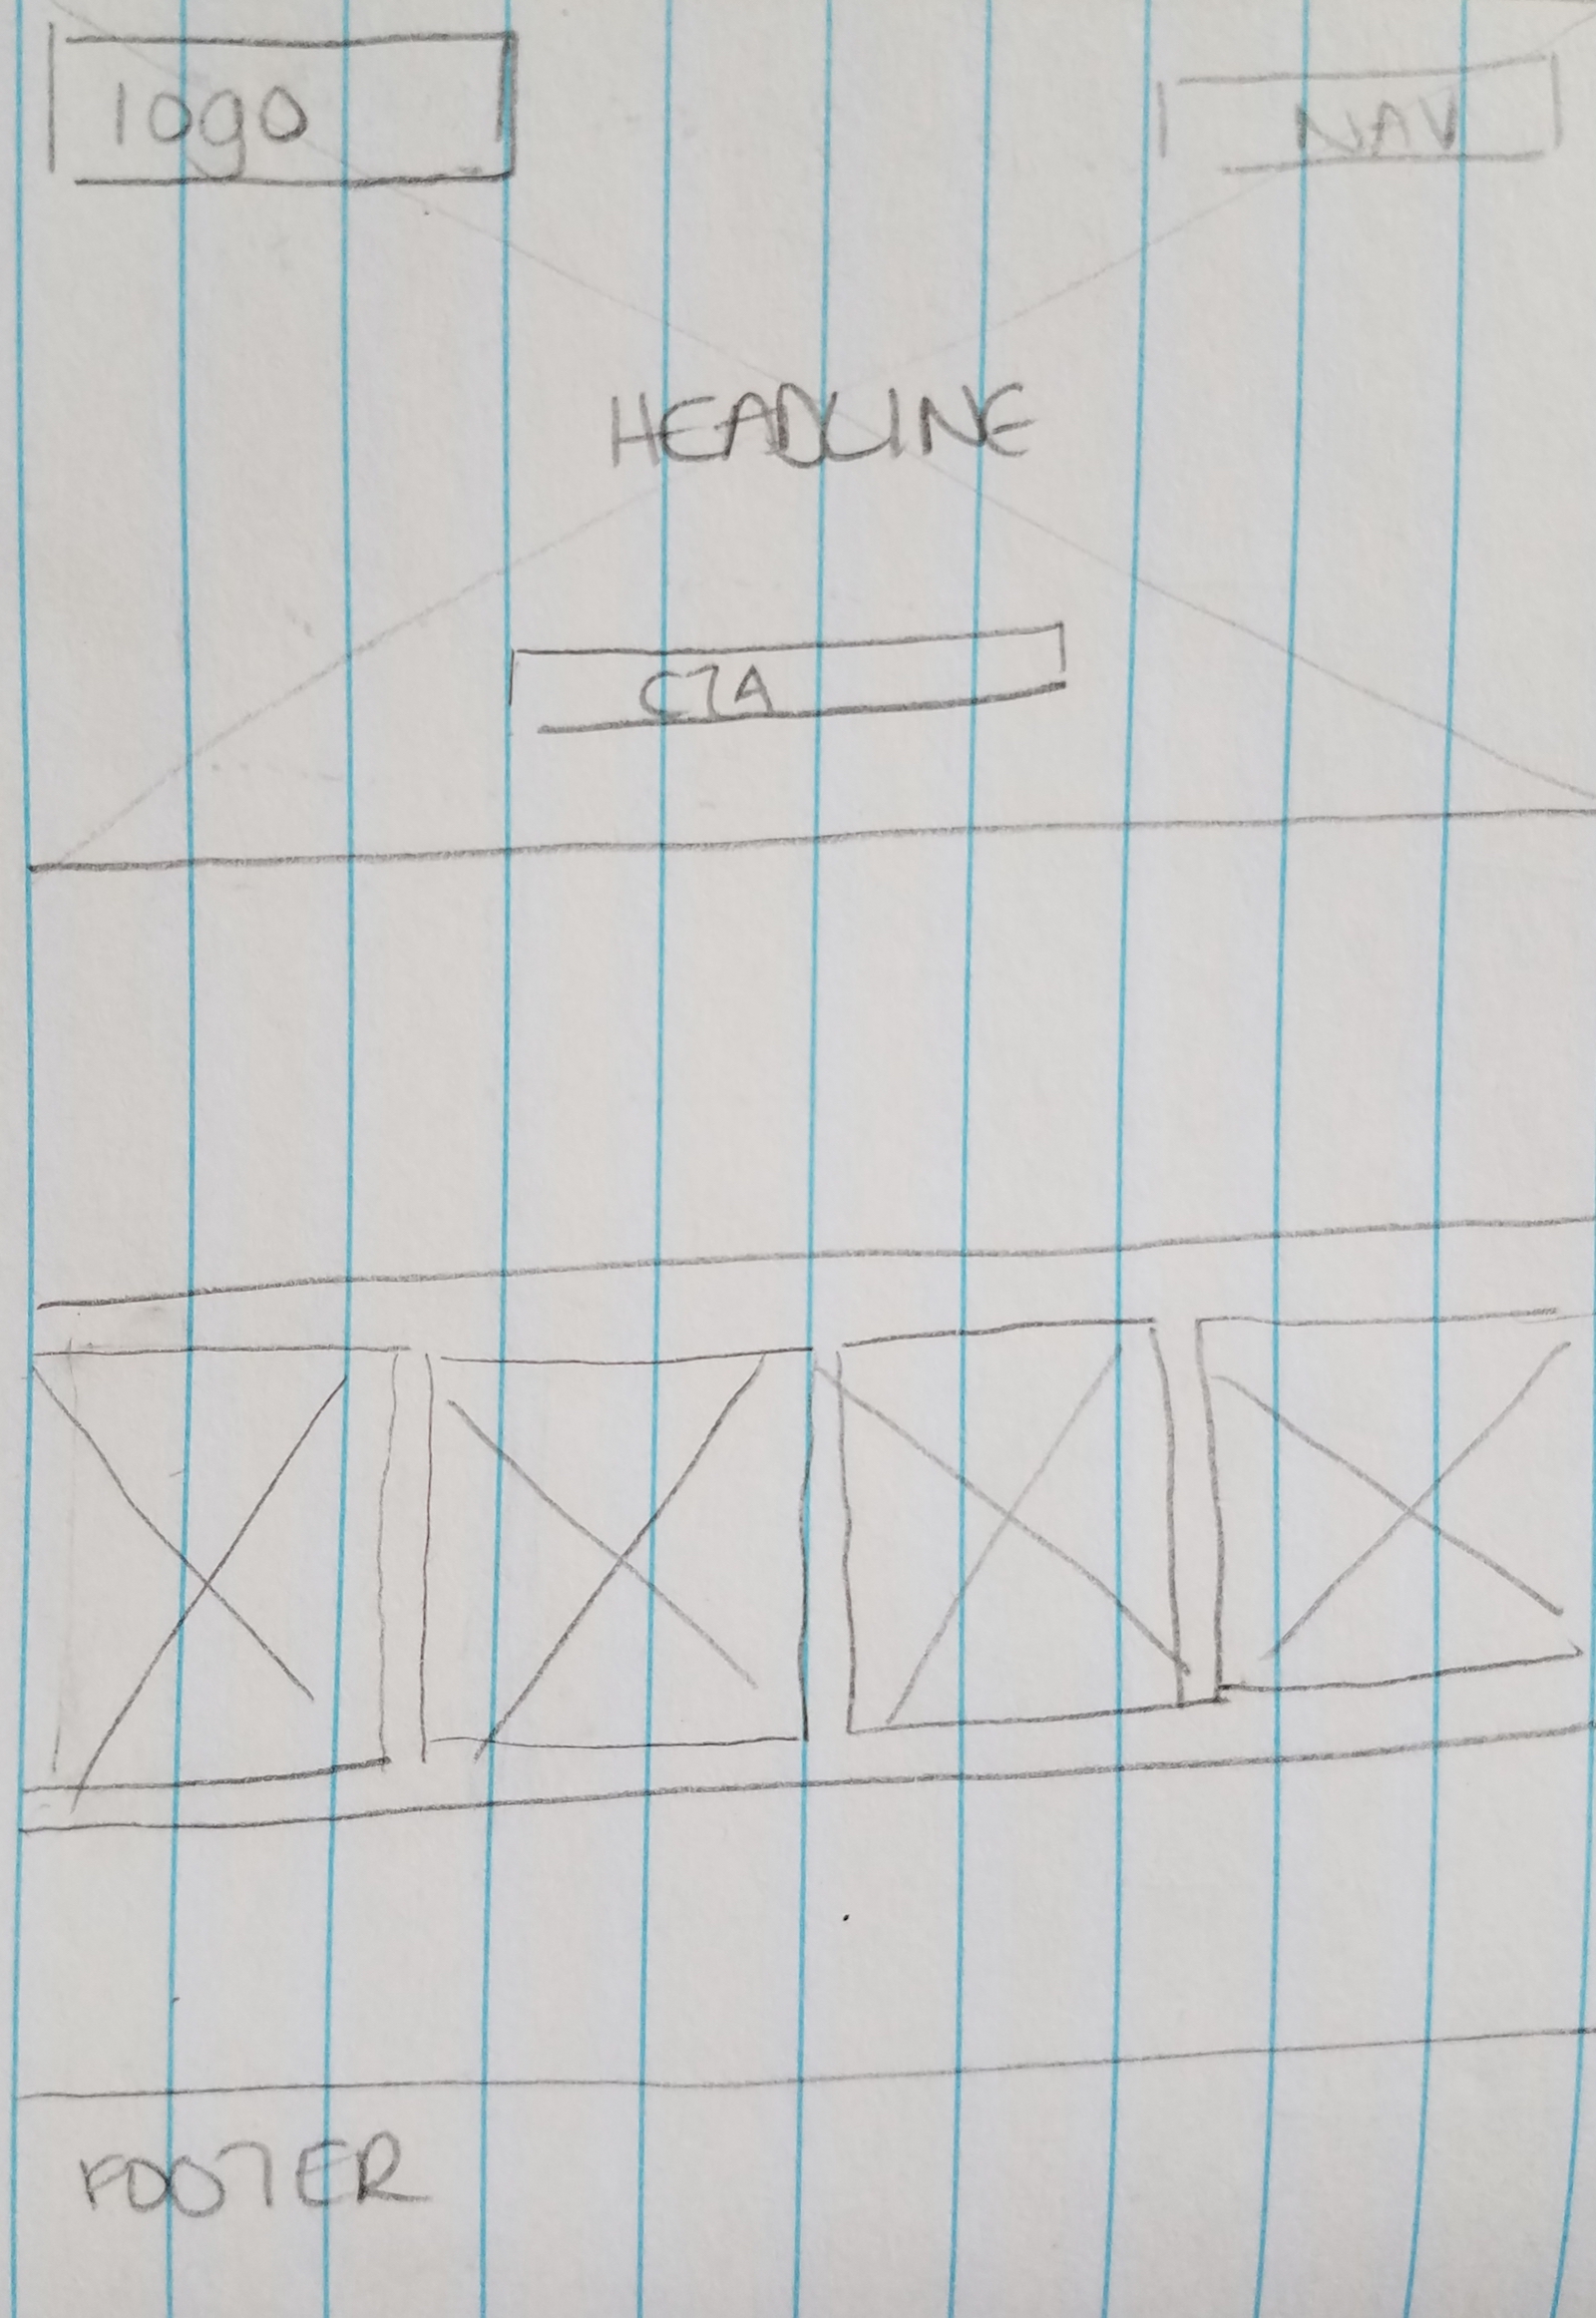 logo
NAV
HEADLINE
CTA
FOOTER